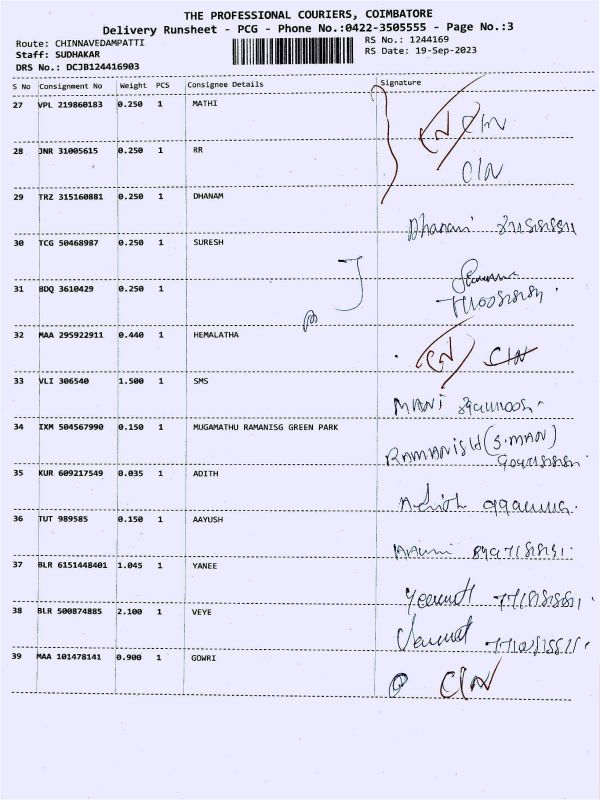 THE PROFESSIONAL COURIERS, COIMBATORE
Delivery Runsheet - PCG - Phone No.:0422-3505555 - Page No.:3
Route: CHINNAVEDAMPATTI
RS No.: 1244169
Staff: SUDHAKAR
RS Date: 19-Sep-2023
DRS No.: DCJB124416903
S No Consignment No Weight PCS Consignee Details Signature
27 VPL 219860183 0.250 1 MATHI
C/N
28 JNR 31005615 0.250 1 RR
C/N
29 TRZ 315160881 0.250 1 DHANAM
Dhanam
30 TCG 50468987 0.250 1 SURESH
31 BDQ 3610429 0.250 1
32 MAA 295922911 0.440 1 HEMALATHA
C/N
33 VLI 306540 1.500 1 SMS
MANI
34 IXM 504567990 0.150 1 MUGAMATHU RAMANISG GREEN PARK
(S.MAN)
35 KUR 609217549 0.035 1 ADITH
36 TUT 989585 0.150 1 AAYUSH
37 BLR 6151448401 1.045 1 YANEE
38 BLR 500874885 2.100 1 VEYE
39 MAA 101478141 0.900 1 GOWRI
C/N